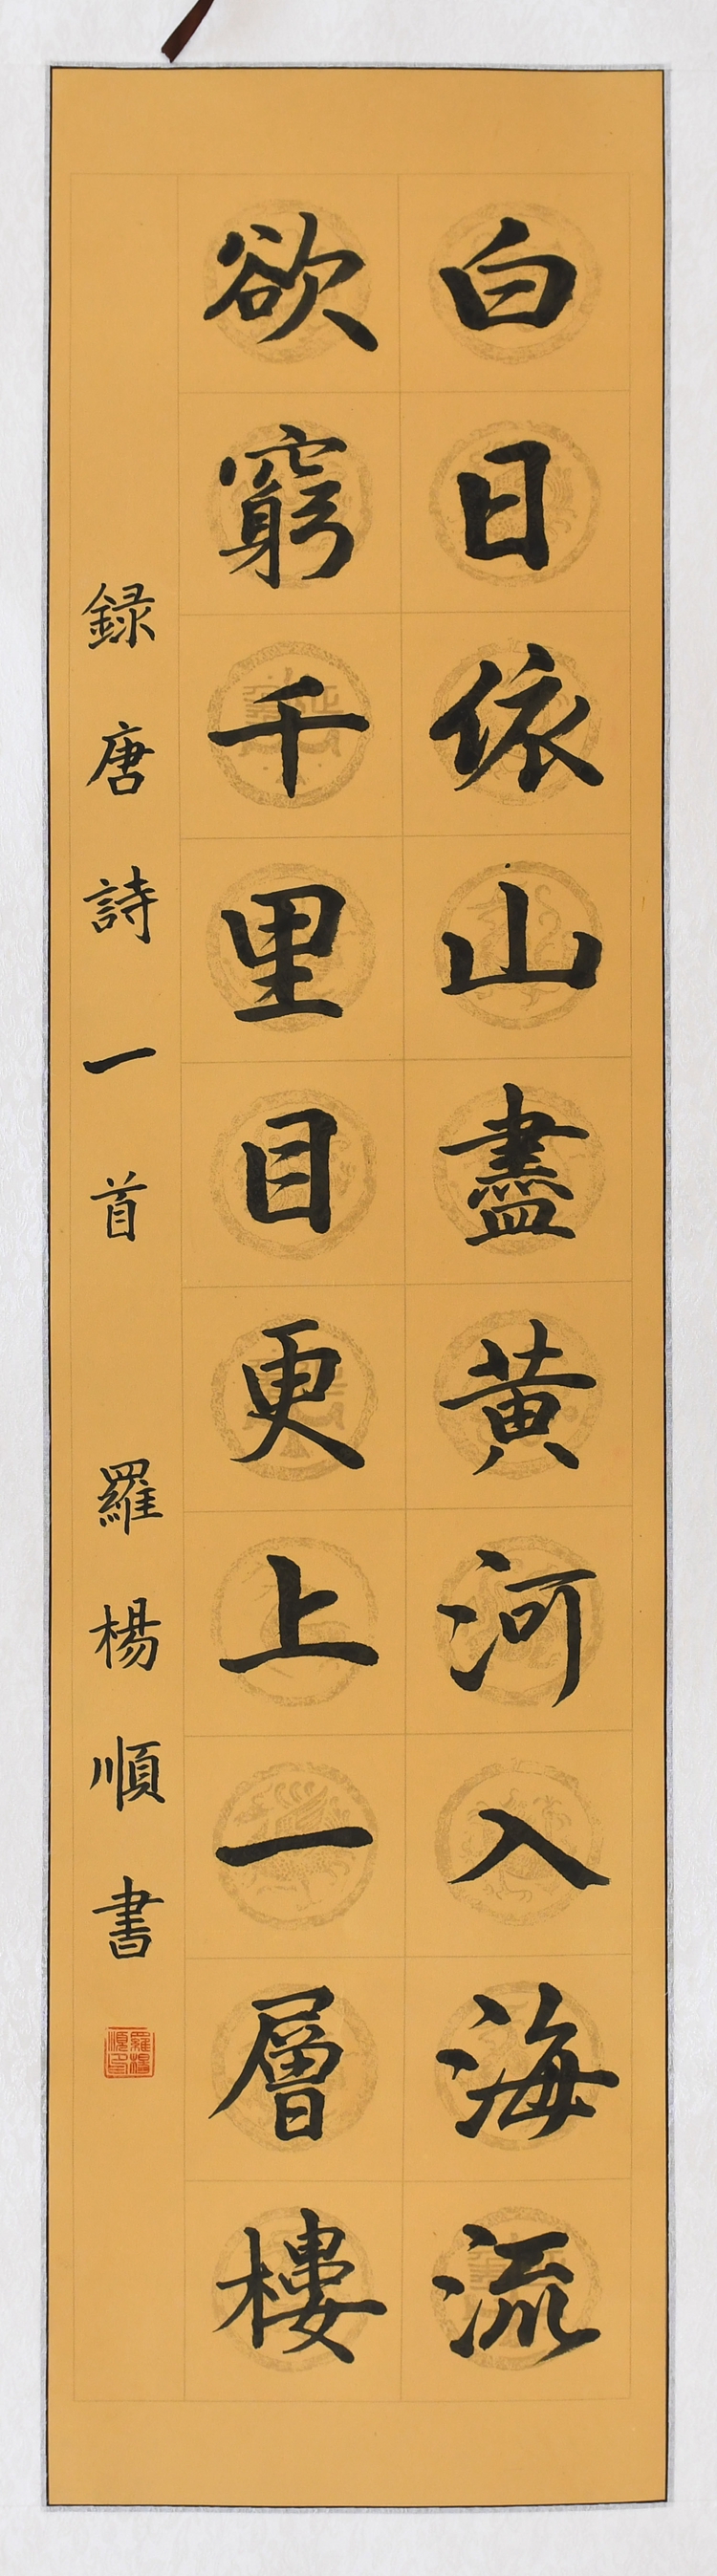 白日依山盡黃河入海流
欲窮千里目更上一層樓
録唐詩一首 羅楊順書
羅楊順印